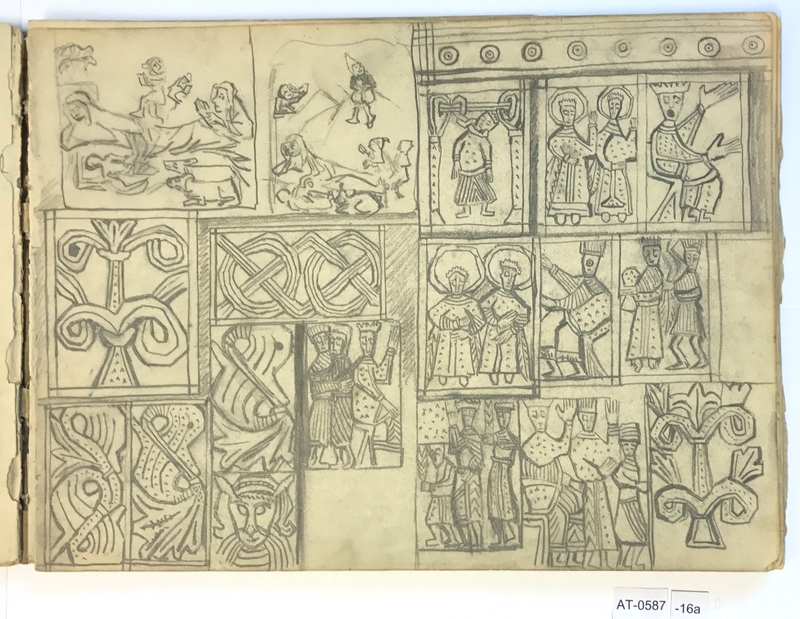 AT-0587
-16a